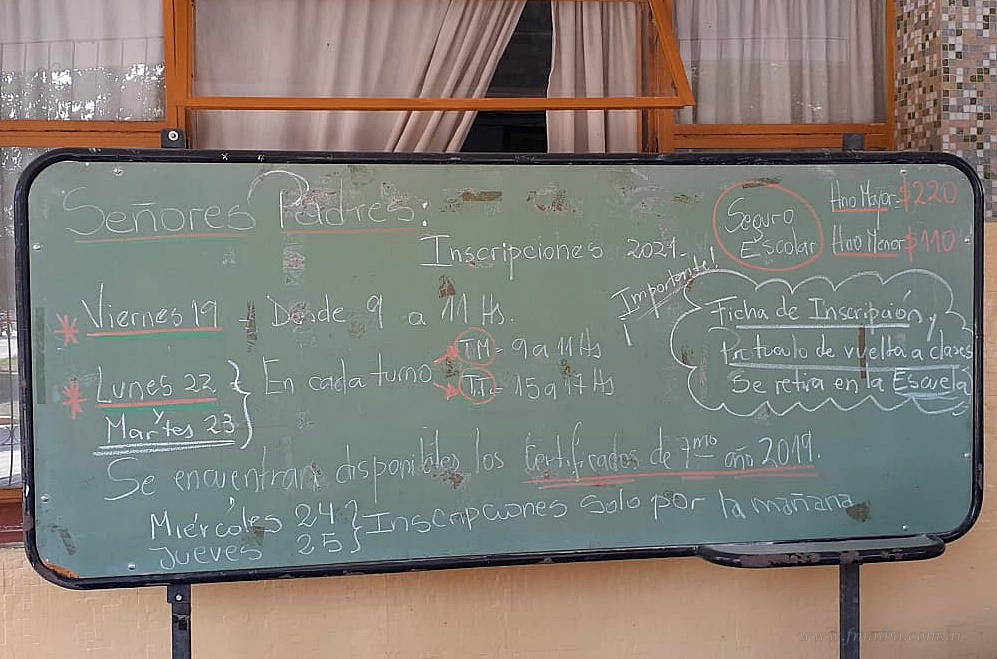 Señores Padres:
Inscripciones 2021.
Seguro
Escolar
Hno Mayor $220
Hno Menor $110
Importante!
Ficha de Inscripción y
Protocolo de vuelta a clases
Se retira en la Escuela
* Viernes 19 Desde 9 a 11 Hs.
* Lunes 22
y
Martes 23
} En cada turno
TM - 9 a 11 Hs
TT - 15 a 17 Hs
Se encuentran disponibles los Certificados de 7mo año 2019.
Miércoles 24
Jueves 25
} Inscripciones solo por la mañana